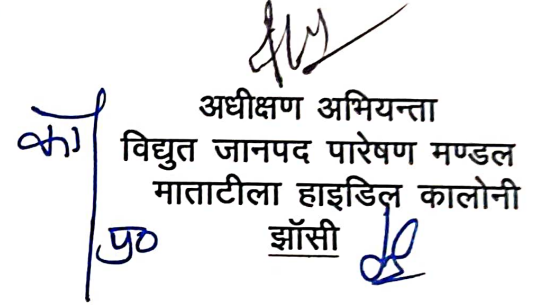 अधीक्षण अभियन्ता
का विद्युत जानपद पारेषण मण्डल
माताटीला हाइडिल कालोनी
प्र० झॉसी